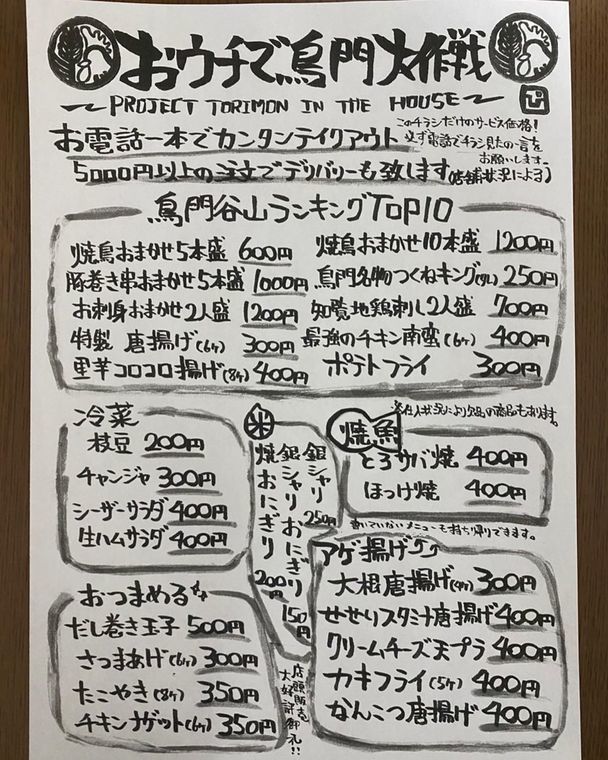 おウチで鳥門大作戦
〜PROJECT TORIMON IN THE HOUSE〜
お電話一本でカンタンテイクアウト
このチラシだけのサービス価格!
必ず電話でチラシ見たの一言を
お願いします。
5000円以上の注文でデリバリーも致します(店舗状況による)
鳥門谷山ランキングTOP10
焼鳥おまかせ5本盛 600円
焼鳥おまかせ10本盛 1200円
豚巻き串おまかせ5本盛 1000円
鳥門名物つくねキング 250円
お刺身おまかせ2人盛 1200円
知覧地鶏刺し2人盛 700円
特製 唐揚げ(6ヶ) 300円
最強のチキン南蛮(6ヶ) 400円
里芋コロコロ揚げ(8ヶ) 400円
ポテトフライ 300円
※仕入状況により欠品の商品もあります。
冷菜
枝豆 200円
チャンジャ 300円
シーザーサラダ 400円
生ハムサラダ 400円
米
銀シャリ 250円
銀シャリおにぎり 150円
焼おにぎり 200円
焼魚
とろサバ焼 400円
ほっけ焼 400円
書いていないメニューも持ち帰りできます。
アゲ揚げ
大根唐揚げ 300円
せせりスタミナ唐揚げ 400円
クリームチーズ天プラ 400円
カキフライ(5ヶ) 400円
なんこつ唐揚げ 400円
おつまめる
だし巻き玉子 500円
さつまあげ(6ヶ) 300円
たこやき(8ヶ) 350円
チキンナゲット(6ヶ) 350円
店頭販売
大好評御礼!!